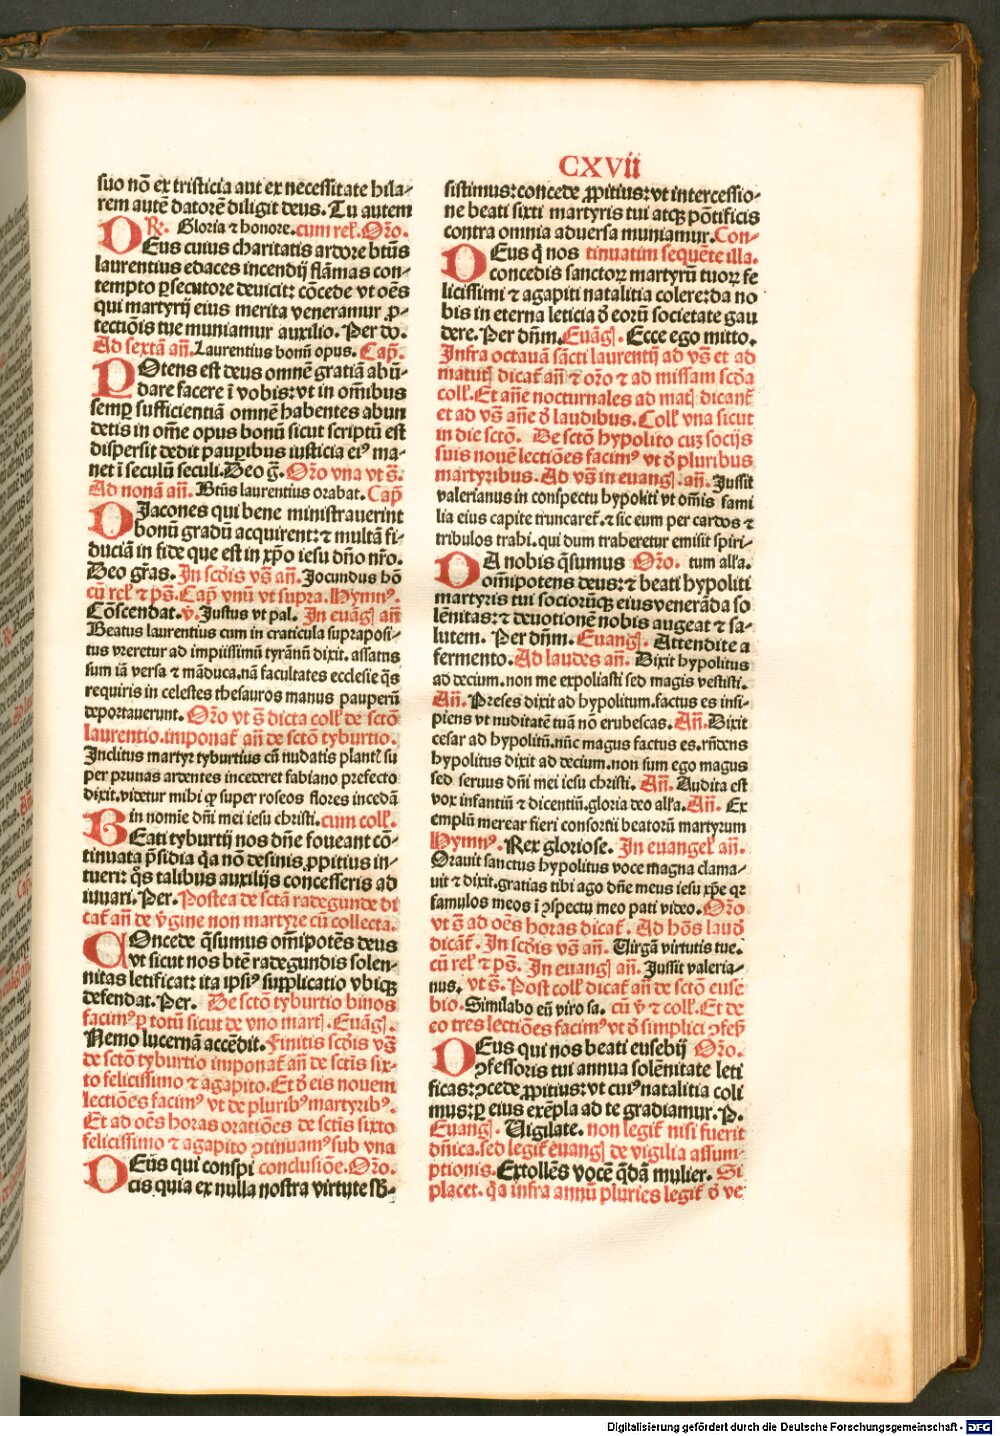 CXVii
suo nō ex tristicia aut ex necessitate hila-
rem autē datorē diligit deus. Tu autem
R. Gloria ⁊ honore. cum rel̄. Oro.
DEus cuius charitatis ardore btūs
laurentius edaces incendij flāmas con-
tempto ꝑsecutore deuicit: cōcede vt oēs
qui martyrij eius merita veneramur ꝓ-
tectiōis tue muniamur auxilio. Per do.
Ad sextā añ. Laurentius bonū opus. Cap̄.
POtens est deus omnē gratiā abū-
dare facere ī vobis: vt in om̄ibus
semꝑ sufficientiā omnē habentes abun
detis in om̄e opus bonū sicut scriptū est
dispersit dedit pauꝑibus iusticia eiꝰ ma-
net ī seculū seculi. Deo g̃. Oro vna vt s̄.
Ad nonā añ. Btūs laurentius orabat. Cap̄
DJacones qui bene ministrauerint
bonū gradū acquirent: ⁊ multā fi-
duciā in fide que est in xp̄o iesu dn̄o nr̄o.
Deo gr̄as. In scd̄is vs̄ añ. Jocundus hō
cū rel̄ ⁊ ps̄. Cap̄ vnū vt supra. Hymnꝰ.
Cōscendat. v̄. Justus vt pal. In euāg̃ añ
Beatus laurentius cum in craticula supraposi-
tus vreretur ad impiissimū tyrānū dixit. assatus
sum iā versa ⁊ māduca. nā facultates ecclesie q̄s
requiris in celestes thesauros manus pauperū
deportauerunt. Oro vt s̄ dicta col̄l de sctō
laurentio. imponat̄ añ de sctō tyburtio.
Inclitus martyr tyburtius cū nudatis plant̄ su
per prunas ardentes incederet fabiano prefecto
dixit. videtur mihi ꝙ super roseos flores incedā
in nomīe dn̄i mei iesu christi. cum col̄l.
BEati tyburtij nos dn̄e foueant cō-
tinuata p̄sidia q̄a nō desinis ꝓpitius in-
tueri: q̄s talibus auxilijs concesseris ad
iuuari. Per. Postea de sctā radegunde di
cat̄ añ de v̄gine non martyre cū collecta.
COncede q̄sumus om̄ipotēs deus
vt sicut nos btē radegundis solen-
nitas letificat: ita ipsiꝰ supplicatio vbicꝫ
defendat. Per. De sctō tyburtio binos
facimꝰ ꝑ totū sicut de vno mart̄. Euāg̃.
Nemo lucernā accēdit. Finitis scd̄is vs̄
de sctō tyburtio imponat̄ añ de sctis six-
to felicissimo ⁊ agapito. Et ō eis nouem
lectiōes facimꝰ vt de pluribꝰ martyribꝰ.
Et ad oēs horas oratiōes de sctis sixto
felicissimo ⁊ agapito ↄtinuamꝰ sub vna
DEūs qui conspi conclusiōe. Oro.
cis quia ex nulla nostra virtute sb̄-
sistimus: concede ꝓpitius: vt intercessio-
ne beati sixti martyris tui atqꝫ pōtificis
contra omnia aduersa muniamur. Con-
DEus q̄ nos tinuatim sequēte illa.
concedis sanctoꝝ martyrū tuoꝝ fe
licissimi ⁊ agapiti natalitia colere: da no
bis in eterna leticia ō eorū societate gau
dere. Per dn̄m. Euāg̃. Ecce ego mitto.
Infra octauā sācti laurentij ad vs̄ et ad
matut̄ dicat̄ añ ⁊ oro ⁊ ad missam scd̄a
col̄l. Et añe nocturnales ad mat̄ dicant̄
et ad vs̄ añe ō laudibus. Col̄l vna sicut
in die sctō. De sctō hypolito cuꝫ socijs
suis nouē lectiōes facimꝰ vt ō pluribus
martyribus. Ad vs̄ in euang̃. añ. Jussit
valerianus in conspectu hypoliti vt om̄is fami
lia eius capite truncaret̄. ⁊ sic eum per cardos ⁊
tribulos trahi. qui dum traheretur emisit spiri-
DA nobis q̄sumus Oro. tum all̄a.
om̄ipotens deus: ⁊ beati hypoliti
martyris tui sociorūqꝫ eius venerāda so
lēnitas: ⁊ deuotionē nobis augeat ⁊ sa-
lutem. Per dn̄m. Euang̃. Attendite a
fermento. Ad laudes añ. Dixit hypolitus
ad decium. non me expoliasti sed magis vestisti.
Añ. Preses dixit ad hypolitum. factus es insi-
piens vt nuditatē tuā nō erubescas. Añ. Dixit
cesar ad hypolitū. nūc magus factus es. rn̄dens
hypolitus dixit ad decium. non sum ego magus
sed seruus dn̄i mei iesu christi. Añ. Audita est
vox infantiū ⁊ dicentiū. gloria deo all̄a. Añ. Ex
emplū merear fieri consortij beatorū martyrum
Hymnꝰ. Rex gloriose. In euangel̄ añ.
Orauit sanctus hypolitus voce magna clama-
uit ⁊ dixit. gratias tibi ago dn̄e meus iesu xp̄e qꝛ
famulos meos ī ↄspectu meo pati video. Oro
vt s̄ ad oēs horas dicat̄. Ad hōs laud̄
dicāt̄. In scd̄is vs̄ añ. Uirgā virtutis tue.
cū rel̄ ⁊ ps̄. In euang̃ añ. Jussit valeria-
nus. vt s̄. Post col̄l dicat̄ añ de sctō euse
bio. Similabo eū viro sa. cū v̄ ⁊ col̄l. Et de
eo tres lectiōes facimꝰ vt ō simplici ↄfess̄
DEus qui nos beati eusebij Oro.
ↄfessoris tui annua solēnitate leti
ficas: ↄcede ꝓpitius: vt cuiꝰ natalitia coli
mus: ꝑ eius exēpla ad te gradiamur. P.
Euang̃. Uigilate. non legit̄ nisi fuerit
dn̄ica. sed legit̄ euang̃ de vigilia assum-
ptionis. Extollēs vocē q̄dā mulier. Si
placet. q̄a infra annū pluries legit̄ ō ve
Digitalisierung gefördert durch die Deutsche Forschungsgemeinschaft - DFG